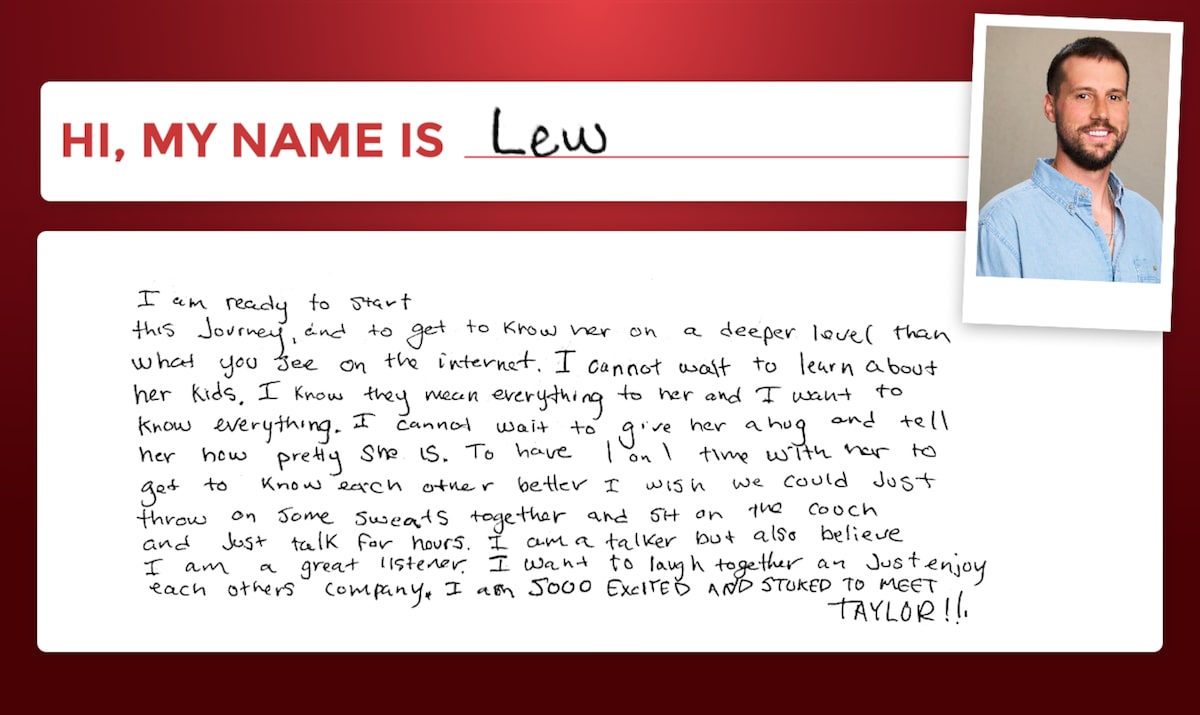 HI, MY NAME IS Lew
I am ready to start
this Journey, and to get to know her on a deeper level than
what you see on the internet. I cannot wait to learn about
her kids. I know they mean everything to her and I want to
know everything. I cannot wait to give her a hug and tell
her how pretty she is. To have 1 on 1 time with her to
get to know each other better I wish we could just
throw on some sweats together and sit on the cooch
and just talk for hours. I am a talker but also believe
I am a great listener. I want to laugh together an Just enjoy
each others company. I am SOOO EXCITED AND STOKED TO MEET
TAYLOR!!!